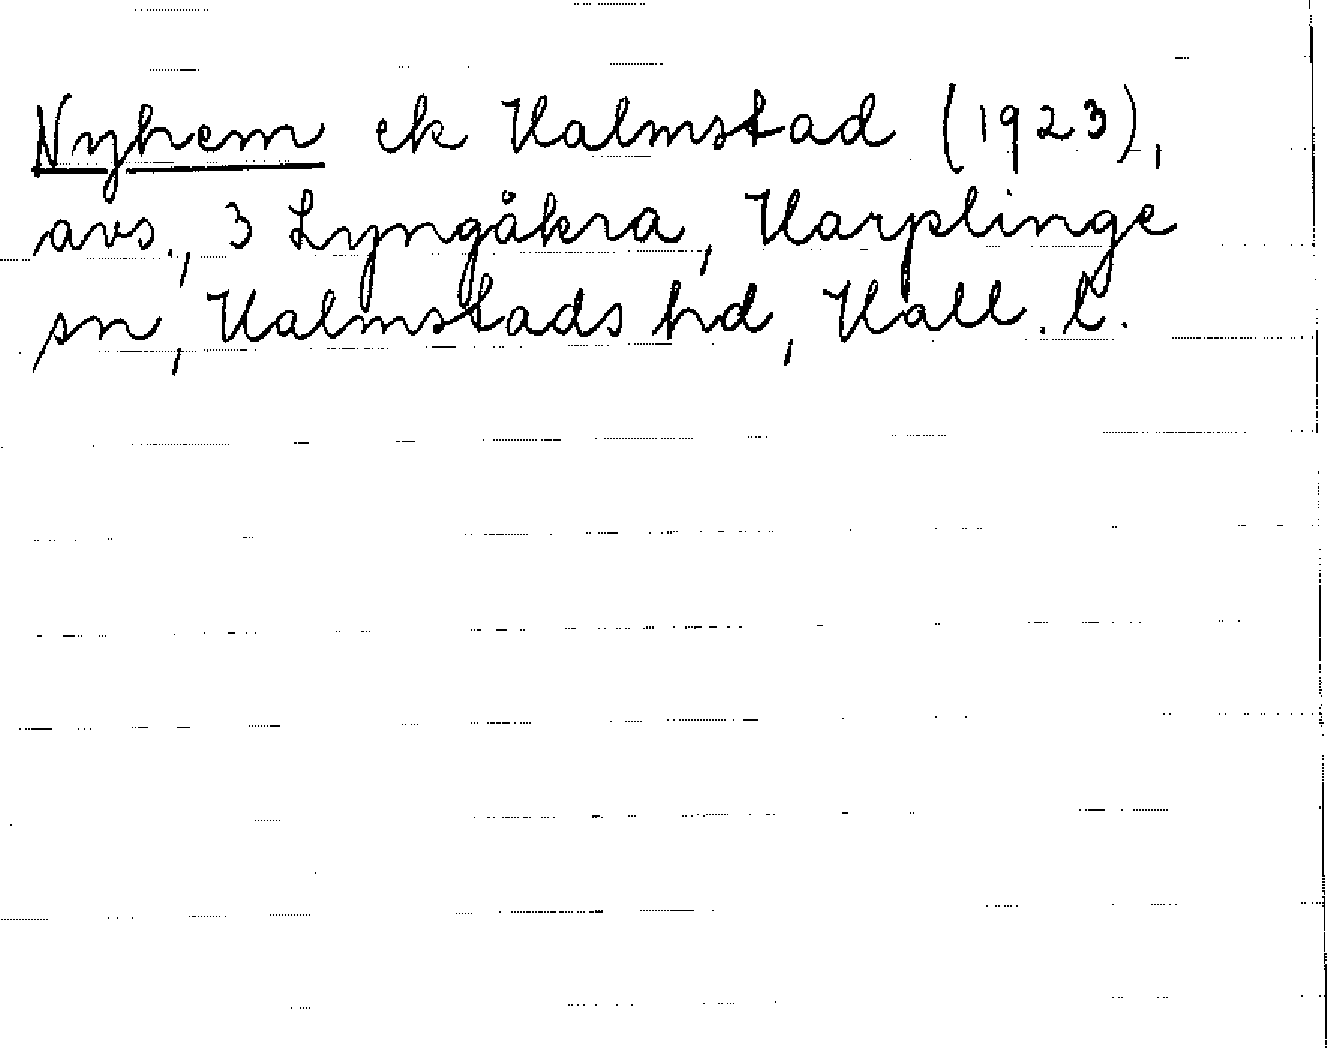 Nyhem ek Halmstad (1923),
avs., 3 Lyngåkra, Harplinge
sn, Halmstads hd, Hall. l.